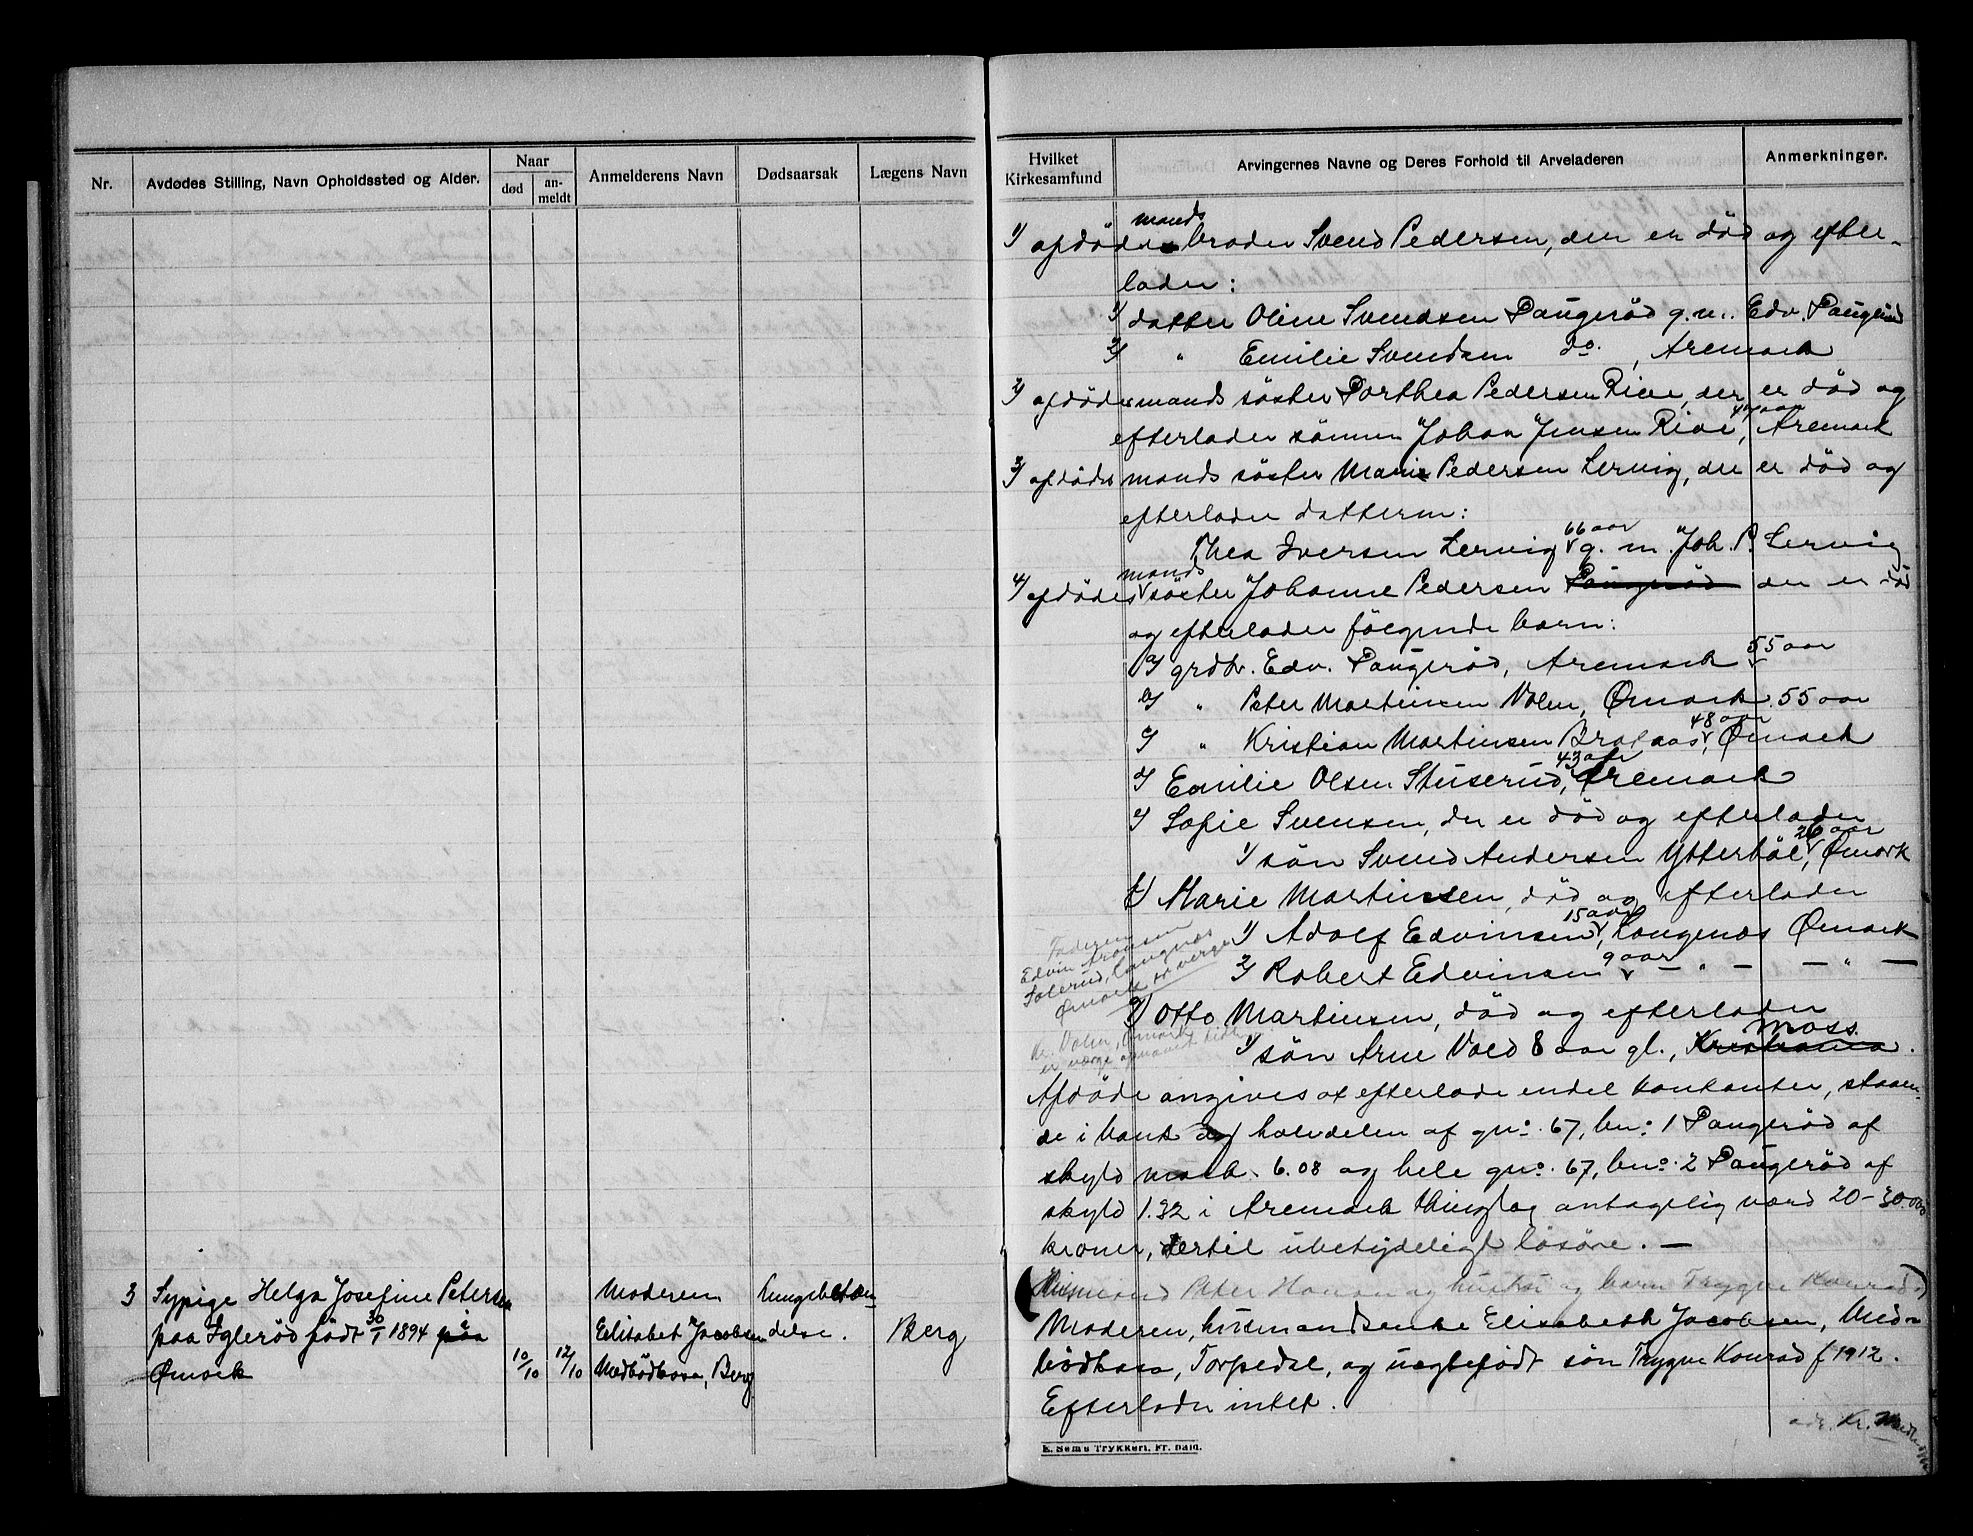 Nr.
Avdødes Stilling, Navn Opholdssted og Alder.
Naar
død
an-
meldt
Anmelderens Navn
Dødsaarsak
Lægens Navn
3 Sypige Helga Josefine Petersen
paa Iglerød født 30/1 1894 paa
Ømark
10/10
12/10
Moderen
Elisabet Jacobsen
Medbödhasa, Berg
Lungebetæn-
delse.
Berg
Hvilket
Kirkesamfund
Arvingernes Navne og Deres Forhold til Arveladeren
Anmerkninger.
1/ afdødes mands broder Svend Pedersen, den er død og efter-
lader:
1/ datter Oline Svendsen Paugerød g. m. Edv. Paugerød
2/ " Emilie Svendsen do. , Aremark
2/ afdødes mands søster Dorthea Pedersen Rive, der er død og
efterlader sönnen Johan Jensen Rive, 47 aar Aremark
3/ afdødes mands søster Marie Pedersen Lervig, der er død og
efterlader datteren:
Thea Iversen Lervig 66 aar g. m. Joh. P. Lervig
4/ afdødes mands søster Johanne Pedersen Paugerød der er død
og efterlader følgende barn:
a/ grdbr. Edv. Paugerød, Aremark 55 aar
b/ " Peter Martinsen Volen, Ømark 55 aar
c/ " Kristian Martinsen Braraas, 48 aar Ømark
d/ Emilie Olsen Stuserud, 43 aar Aremark
e/ Sofie Svensen, der er død og efterlader
1/ søn Svend Andersen Ytterböl, 26 aar Ømark
f/ Marie Martinsen, död og efterlader
1/ Adolf Edvinsen, 15 aar Langenæs Ømark
2/ Robert Edvinsen 9 aar — " — " —
Faderen
Edvin Aronsen
Folerud, Langnæs
Ømark er verge
g/ Otto Martinsen, død og efterlader
1/ søn Arne Vold 8 aar gl., Kristiania Moss.
Kr. Volen, Ømark
er verge opnævnt
Afdøde angives at efterlade endel kontanter, staaen-
de i bank og halvdelen af gno. 67, bn: 1 Paugerød af
skyld mark. 6.08 og hele gno. 67, bno. 2 Paugerød af
skyld 1.32 i Aremark thinglag antagelig værd 20-30.000
kroner, dertil ubetydeligt løsøre. —
Husmand Peter Hansen og hustru og barn Trygve Konrad
Moderen, husmandsenke Elisabeth Jacobsen, Med-
bödhasa, Torpedal, og uegtefødt søn Trygve Konrad f 1912.
Efterlader intet.
adr. Kr.
E. Sems Trykkeri, Fr. hald.